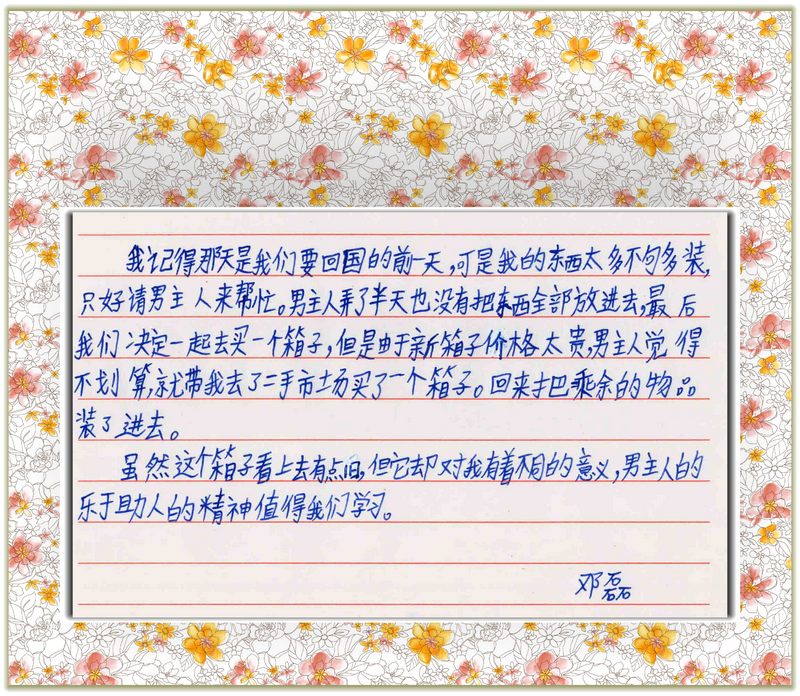 我记得那天是我们要回国的前一天,可是我的东西太多不句多装,
只好请男主人来帮忙。男主人弄了半天也没有把东西全部放进去,最后
我们决定一起去买一个箱子,但是由于新箱子价格太贵,男主人觉得
不划算,就带我去了二手市场买了一个箱子。回来把乘余的物品
装了进去。
虽然这个箱子看上去有点旧,但它却对我有着不同的意义,男主人的
乐于助人的精神值得我们学习。
邓磊